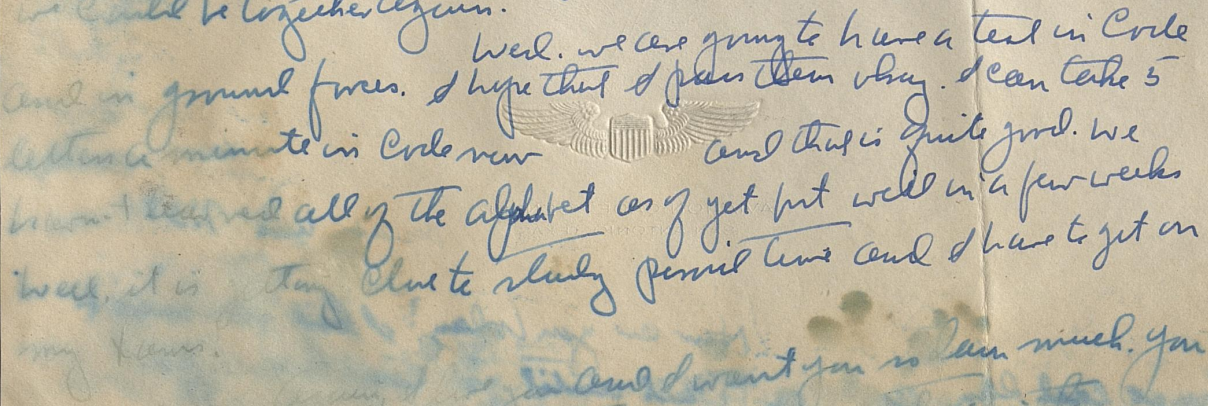 we could be together again.
Well. we are going to have a test in Code
and in ground forces. I hope that I pass them okay. I can take 5
letters a minute in Code now and that is quite good. We
haven't learned all of the alphabet as of yet but will in a few weeks
Well. it is close to study period time and I have to get on
my
and I want you so much. You